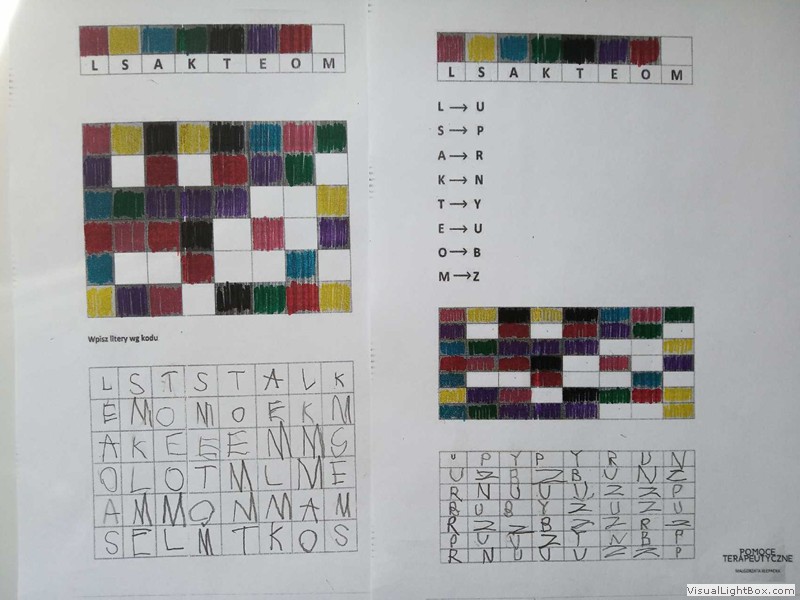 L S A K T E O M
Wpisz litery wg kodu
L S T S T A L K
E M O M O E K M
A K E E E M M S
O L O T M L M E
A M M O M M A M
S E L M T K O S
L S A K T E O M
L → U
S → P
A → R
K → N
T → Y
E → U
O → B
M → Z
U P Y P Y R U N
U Z B Z B U N Z
R N U U U Z Z P
B U B Y Z U Z U
R Z Z B Z Z R Z
P U U Z Y N B P
R N U U U Z Z P
POMOCE
TERAPEUTYCZNE
VisualLightBox.com